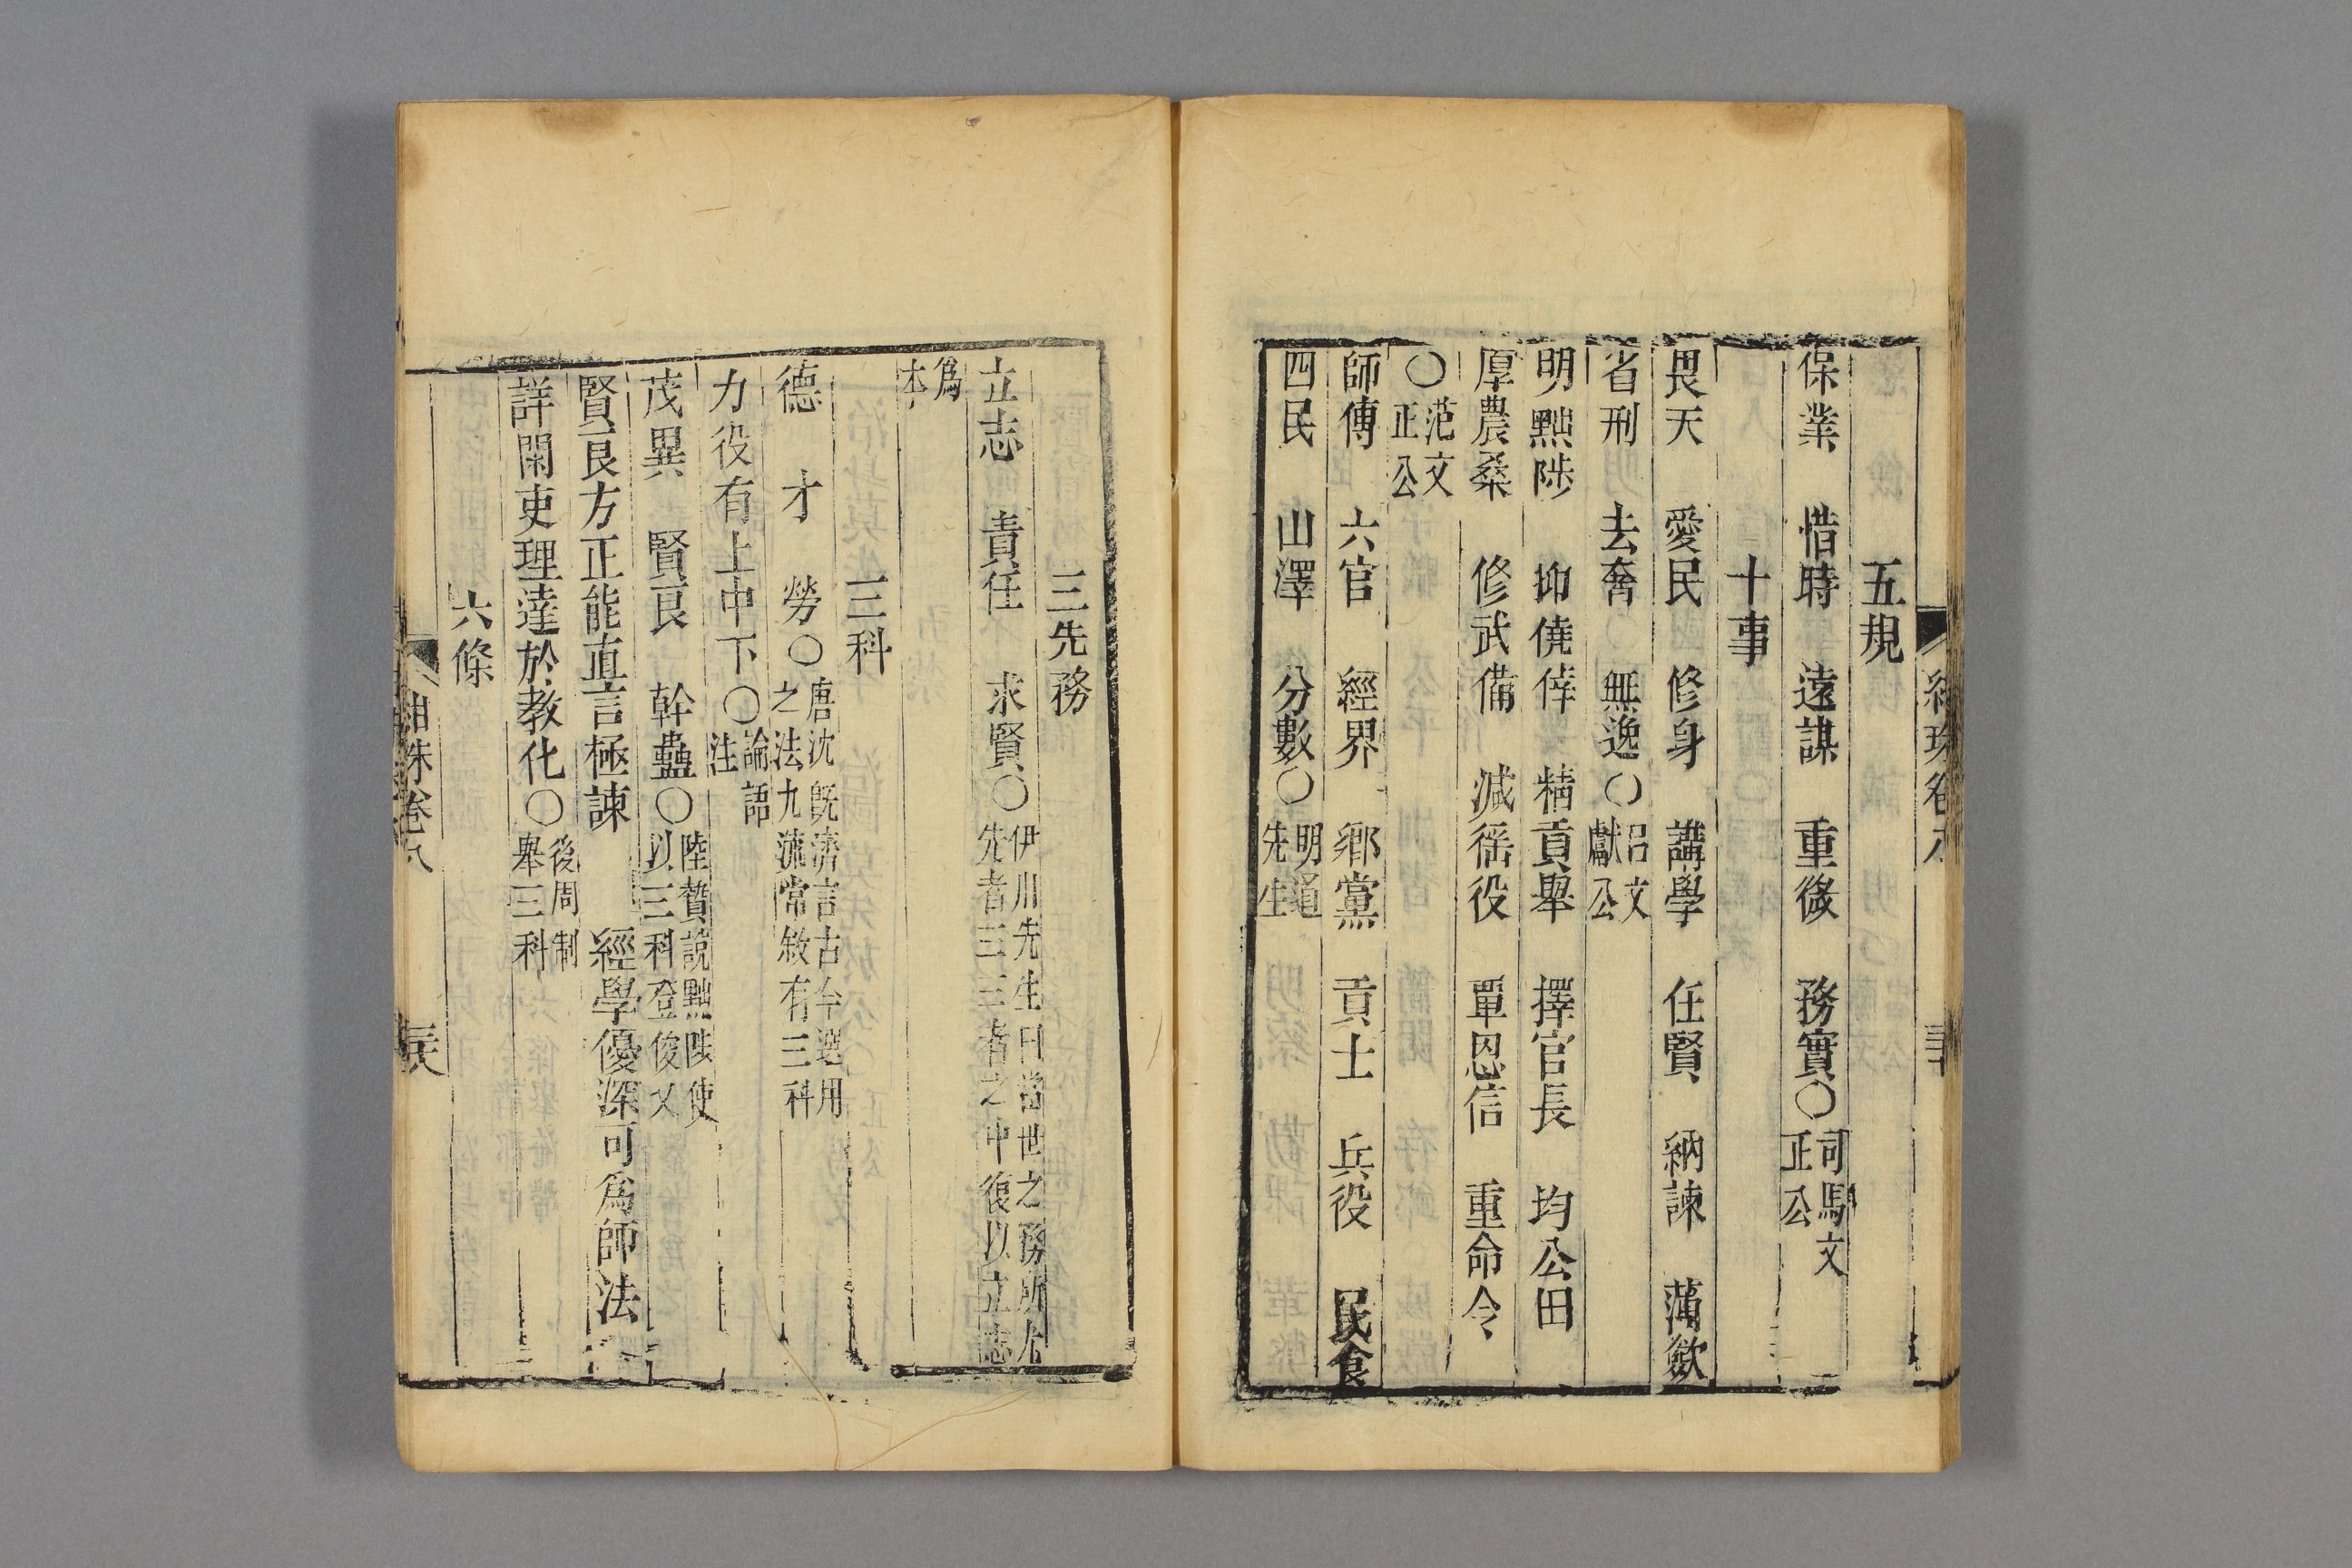 五規
保業　惜時　遠謀　重微　務實〇司馬文正公
十事
畏天　愛民　修身　講學　任賢　納諫　薄歛
省刑　去奢　無逸〇呂文獻公
明黜陟　抑僥倖　精貢舉　擇官長　均公田
厚農桑　修武備　減徭役　覃恩信　重命令
〇范文正公
師傅　六官　經界　鄉黨　貢士　兵役　民食
四民　山澤　分數〇明道先生
三先務
立志　責任　求賢〇伊川先生曰當世之務所尤先者三三者之中復以立志
爲本
三科
德　才　勞〇唐沈既濟言古今選用之法九流常敘有三科
力役有上中下〇論語注
茂異　賢良　幹蠱〇陸贄說黜陟使以三科登俊乂
賢良方正能直言極諫　經學優深可爲師法
詳閑吏理達於教化〇後周制舉三科
六條
紺珠卷八